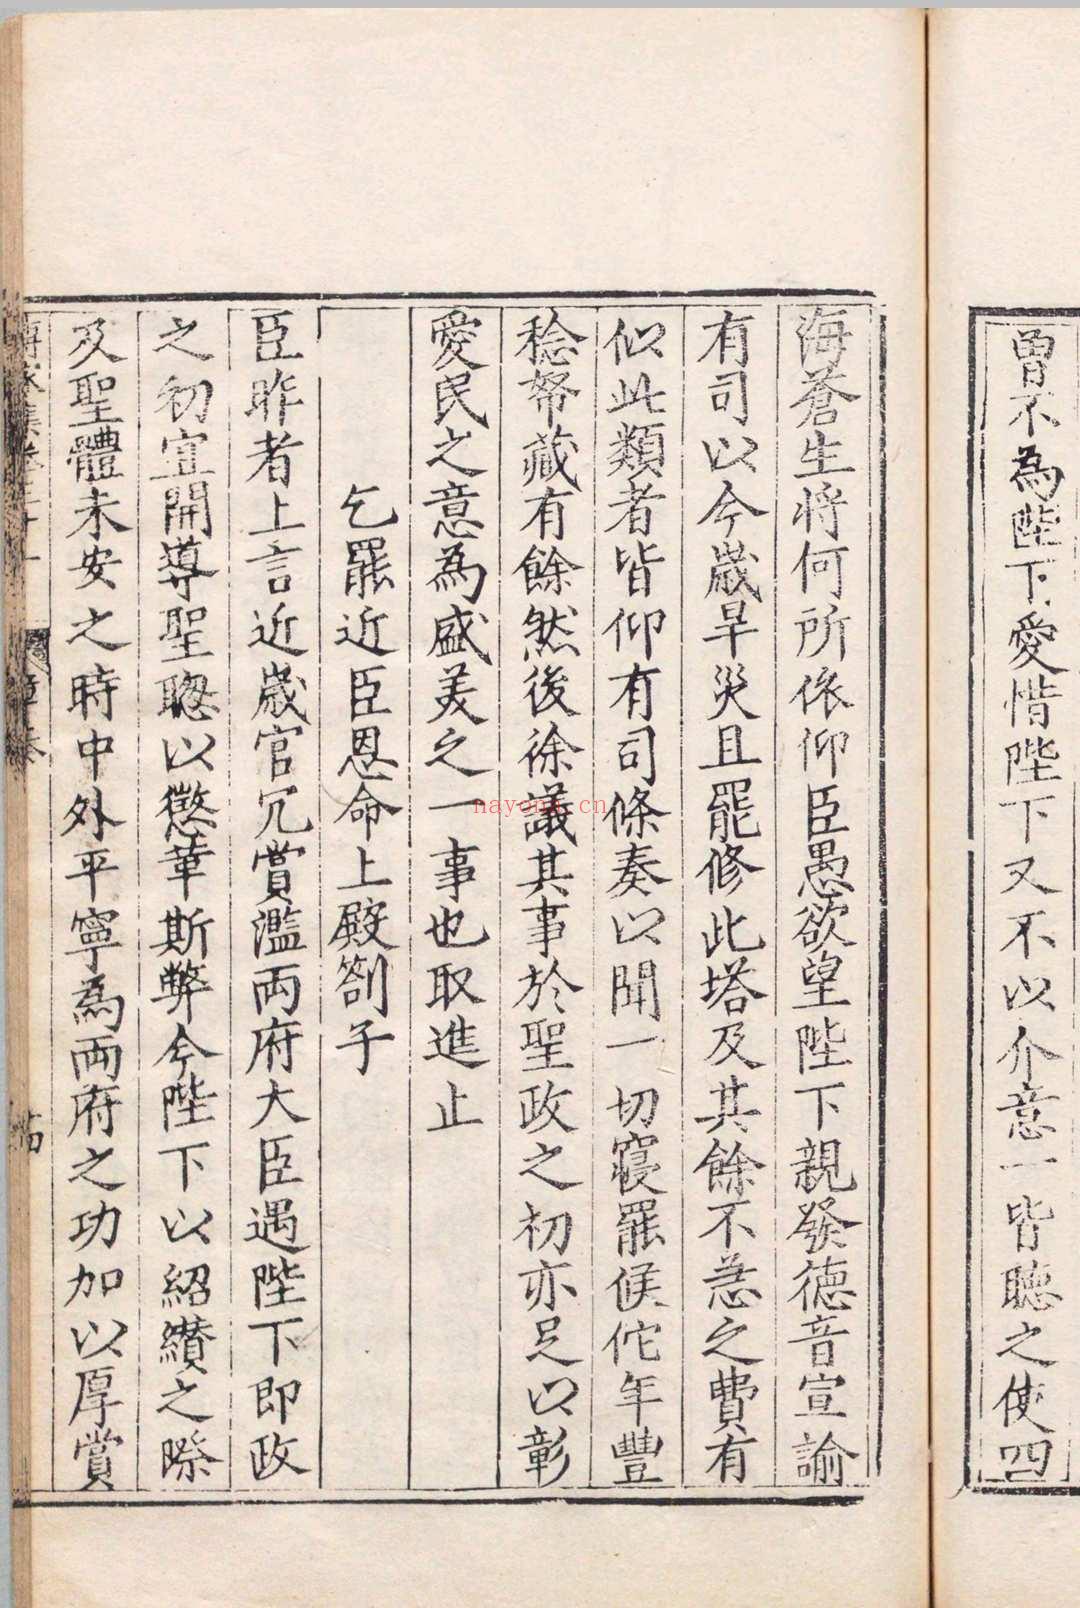 曾不為陛下愛惜陛下又不以介意一皆聽之使四
海蒼生將何所依仰臣愚欲望陛下親發德音宣諭
有司以今歲旱災且罷修此塔及其餘不急之費有
似此類者皆仰有司條奏以聞一切寢罷候佗年豐
稔帑藏有餘然後徐議其事於聖政之初亦足以彰
愛民之意為盛美之一事也取進止
乞罷近臣恩命上殿劄子
臣昨者上言近歲官冗賞濫兩府大臣遇陛下即政
之初宜開導聖聰以懲革斯弊今陛下以紹纘之際
及聖體未安之時中外平寧為兩府之功加以厚賞
nayona.cn